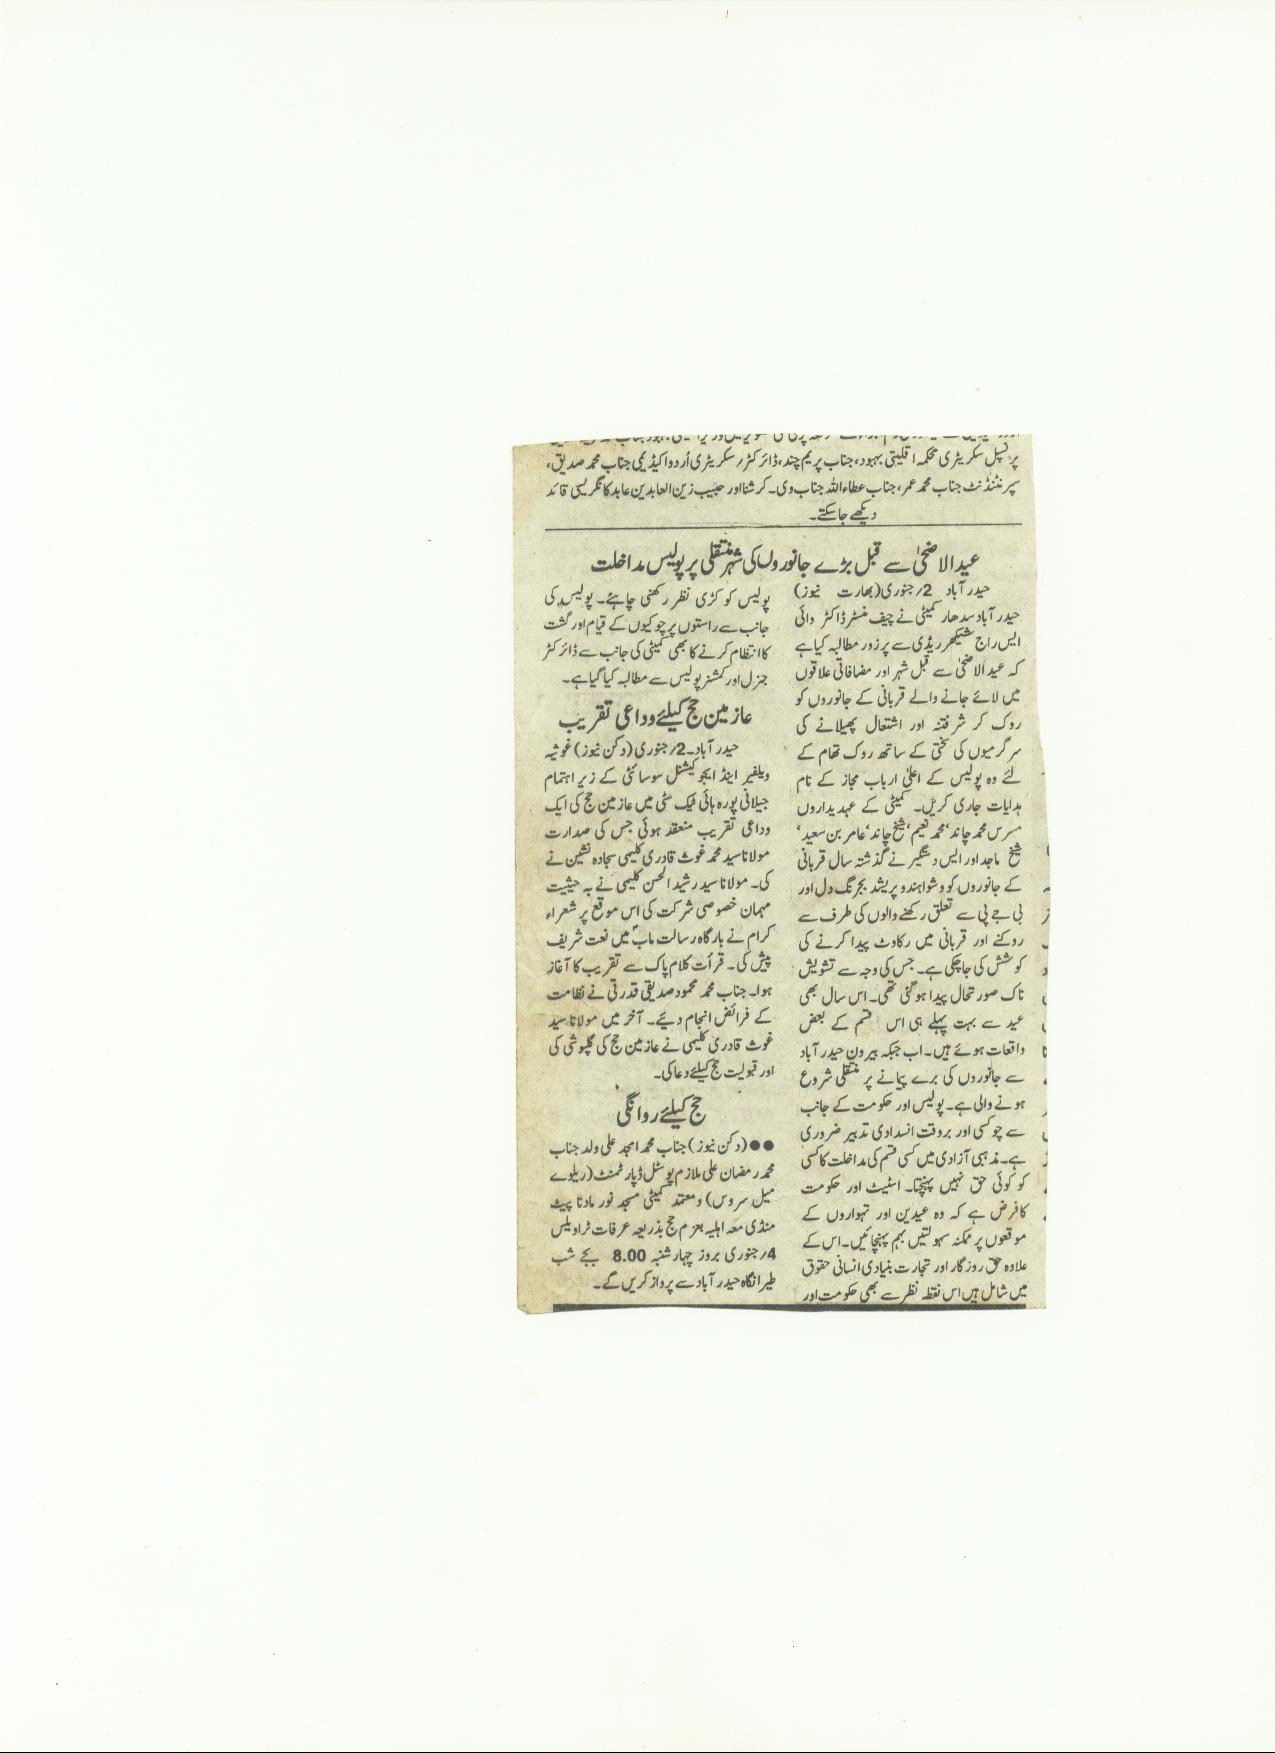 پرنسپل سکریٹری محکمہ اقلیتی بہبود، جناب پریم چند، ڈائرکٹر/ سکریٹری اُردو اکیڈیمی جناب محمد صدیق،
سپرنٹنڈنٹ جناب محمد عمر، جناب عطاء اللہ جناب وی۔ کرشنا اور حبیب زین العابدین عابد کانگریسی قائد
دیکھے جاسکتے۔
عید الاضحیٰ سے قبل بڑے جانوروں کی شہر منتقلی پر پولیس مداخلت
حیدرآباد 2/ جنوری (بھارت نیوز)
حیدرآباد سدھار کمیٹی نے چیف منسٹر ڈاکٹر وائی
ایس راج شیکھر ریڈی سے پرزور مطالبہ کیا ہے
کہ عید الاضحیٰ سے قبل شہر اور مضافاتی علاقوں
میں لائے جانے والے قربانی کے جانوروں کو
روک کر شر فتنہ اور اشتعال پھیلانے کی
سرگرمیوں کی سختی کے ساتھ روک تھام کے
لئے وہ پولیس کے اعلیٰ ارباب مجاز کے نام
ہدایات جاری کریں۔ کمیٹی کے عہدیداروں
مسرس محمد چاند، محمد نعیم، شیخ چاند، عامر بن سعید،
شیخ ماجد اور ایس دستگیر نے گذشتہ سال قربانی
کے جانوروں کو وشواہندو پریشد بجرنگ دل اور
بی جے پی سے تعلق رکھنے والوں کی طرف سے
روکنے اور قربانی میں رکاوٹ پیدا کرنے کی
کوشش کی جاچکی ہے۔ جس کی وجہ سے تشویش
ناک صورتحال پیدا ہوگئی تھی۔ اس سال بھی
عید سے بہت پہلے ہی اس قسم کے بعض
واقعات ہوئے ہیں۔ اب جبکہ بیرون حیدرآباد
سے جانوروں کی برے پیمانے پر منتقلی شروع
ہونے والی ہے۔ پولیس اور حکومت کے جانب
سے چوکسی اور بروقت انسدادی تدبیر ضروری
ہے۔ مذہبی آزادی میں کسی قسم کی مداخلت کا کسی
کو کوئی حق نہیں پہنچتا۔ اسٹیٹ اور حکومت
کا فرض ہے کہ وہ عیدین اور تہواروں کے
موقعوں پر ممکنہ سہولتیں بہم پہنچائیں۔ اس کے
علاوہ حق روزگار اور تجارت بنیادی انسانی حقوق
میں شامل ہیں اس نقطہ نظر سے بھی حکومت اور
پولیس کو کڑی نظر رکھنی چاہئے۔ پولیس کی
جانب سے راستوں پر چوکیوں کے قیام اور گشت
کا انتظام کرنے کا بھی کمیٹی کی جانب سے ڈائرکٹر
جنرل اور کمشنر پولیس سے مطالبہ کیا گیا ہے۔
عازمین حج کیلئے وداعی تقریب
حیدرآباد۔ 2/ جنوری (دکن نیوز) غوثیہ
ویلفیر اینڈ ایجوکیشنل سوسائٹی کے زیر اہتمام
جیلانی پورہ ہائی ٹیک سٹی میں عازمین حج کی ایک
وداعی تقریب منعقد ہوئی جس کی صدارت
مولانا سید محمد غوث قادری کلیمی سجادہ نشین نے
کی۔ مولانا سید رشید الحسن کلیمی نے بہ حیثیت
مہمان خصوصی شرکت کی اس موقع پر شعراء
کرام نے بارگاہ رسالت مابؐ میں نعت شریف
پیش کی۔ قرأت کلام پاک سے تقریب کا آغاز
ہوا۔ جناب محمد محمود صدیقی قدرتی نے نظامت
کے فرائض انجام دیئے۔ آخر میں مولانا سید
غوث قادری کلیمی نے عازمین حج کی گلپوشی کی
اور قبولیت حج کیلئے دعا کی۔
حج کیلئے روانگی
●● (دکن نیوز) جناب محمد امجد علی ولد جناب
محمد رمضان علی ملازم پوسٹل ڈپارٹمنٹ (ریلوے
میل سروس) و معتمد کمیٹی مسجد نور مادنا پیٹ
منڈی معہ اہلیہ بعزم حج بذریعہ عرفات ٹراویلس
4/ جنوری بروز چہارشنبہ 8.00 بجے شب
طیرانگاہ حیدرآباد سے پرواز کریں گے۔